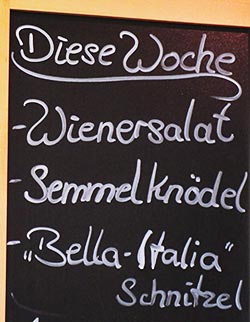 Diese Woche
- Wienersalat
- Semmelknödel
- „Bella-Italia"
Schnitzel